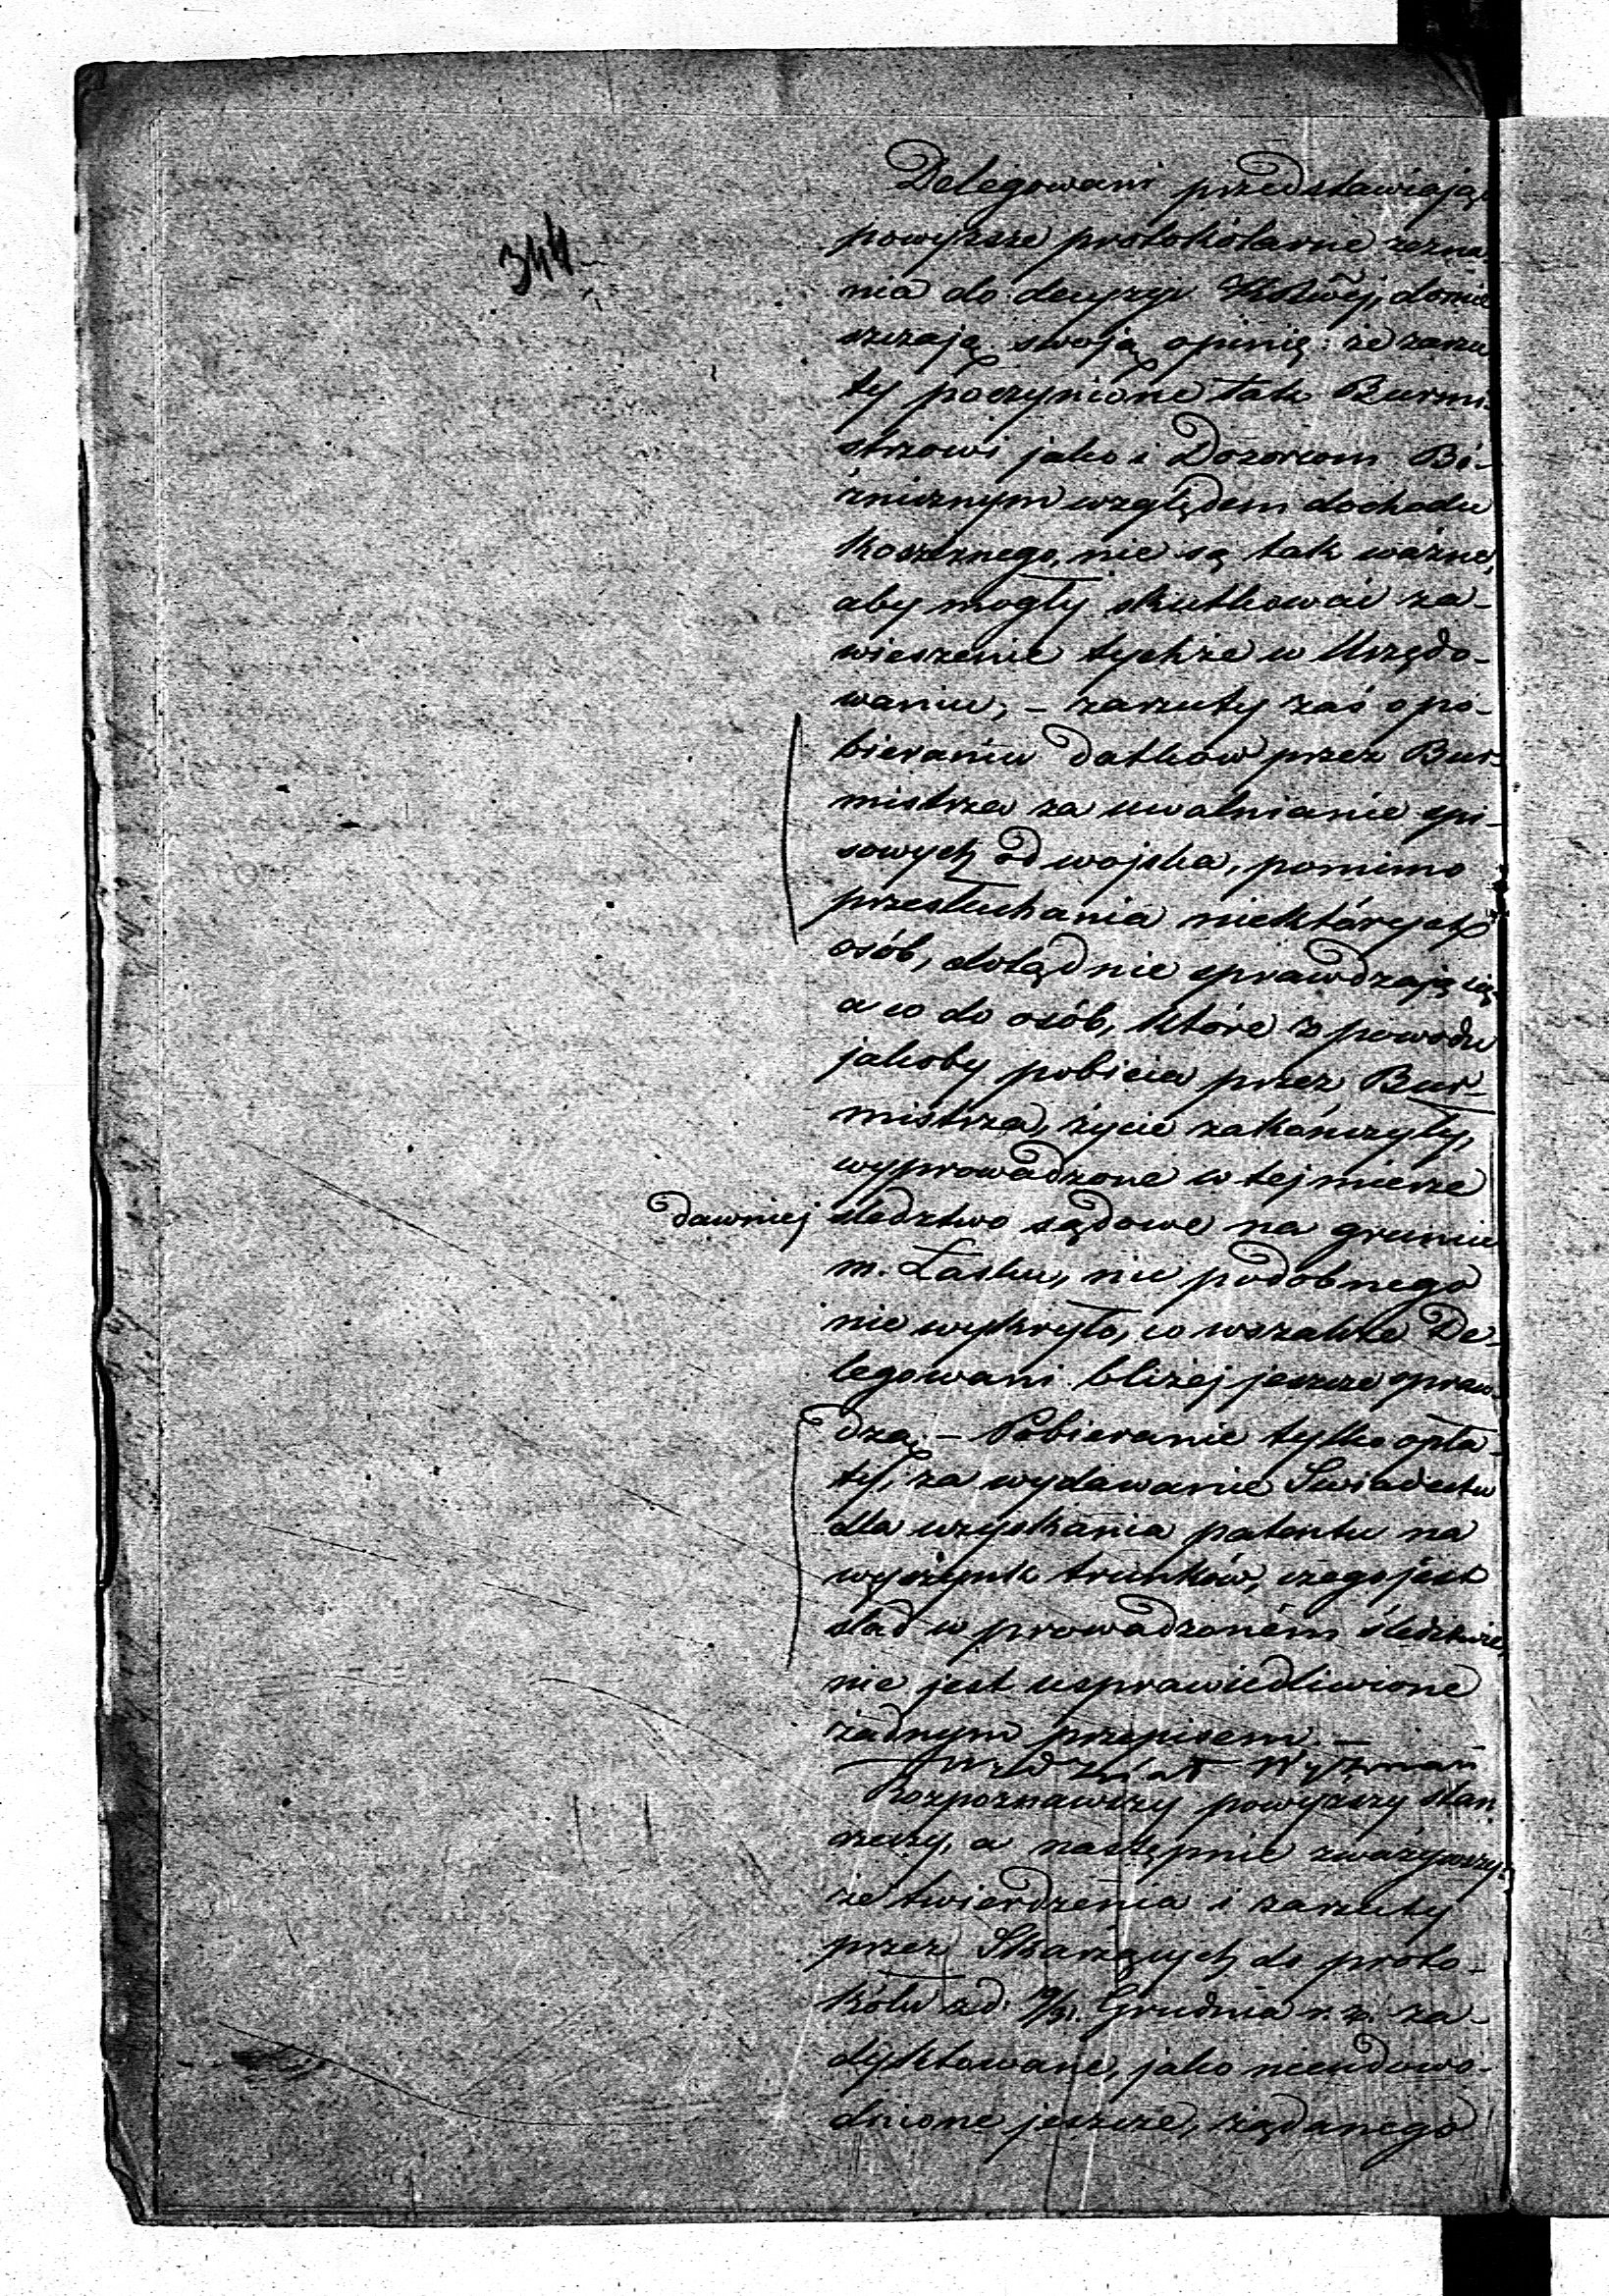 344
Delegowani przedstawiając
powyższe protokólarne zezna
nia do decyzyi donie
szczają swoją opinię: że zarzu
ty poczynione tak Burmi-
strzowi jako i Dozorcom Bó-
żnicznym względem dochodu
koszernego, nie są tak ważne,
aby mogły skutkować za-
wieszenie tychże w Urzędo-
waniu, – zarzuty zaś o po-
bieraniu datków przez Bur-
mistrza za uwalnianie spi-
sowych od wojska, pomimo
przesłuchania niektórych
osób, dotąd nie sprawdzają się
a co do osób, które z powodu
jakoby pobicia przez Bur-
mistrza, życie zakończyły,
wyprowadzone w tej mierze
dawniej śledztwo sądowe na gruncie
m. Łasku, nic podobnego
nie wykryło, co wszakże De-
legowani bliżej jeszcze spraw-
dzą. – Pobieranie tylko opła-
ty, za wydawanie Świadectw
dla uzyskania patentu na
wyszynk trunków, czego jest
ślad w prowadzoném śledztwie,
nie jest usprawiedliwione
żadnym przepisem. –
Rozpoznawszy powyższy stan
rzeczy, a następnie zważywszy,
że twierdzenia i zarzuty
przez Skarżących do proto-
kółu z d: 19/31. Grudnia r. z. za-
dyktowane, jako nieudowo-
dnione jeszcze, żądanego